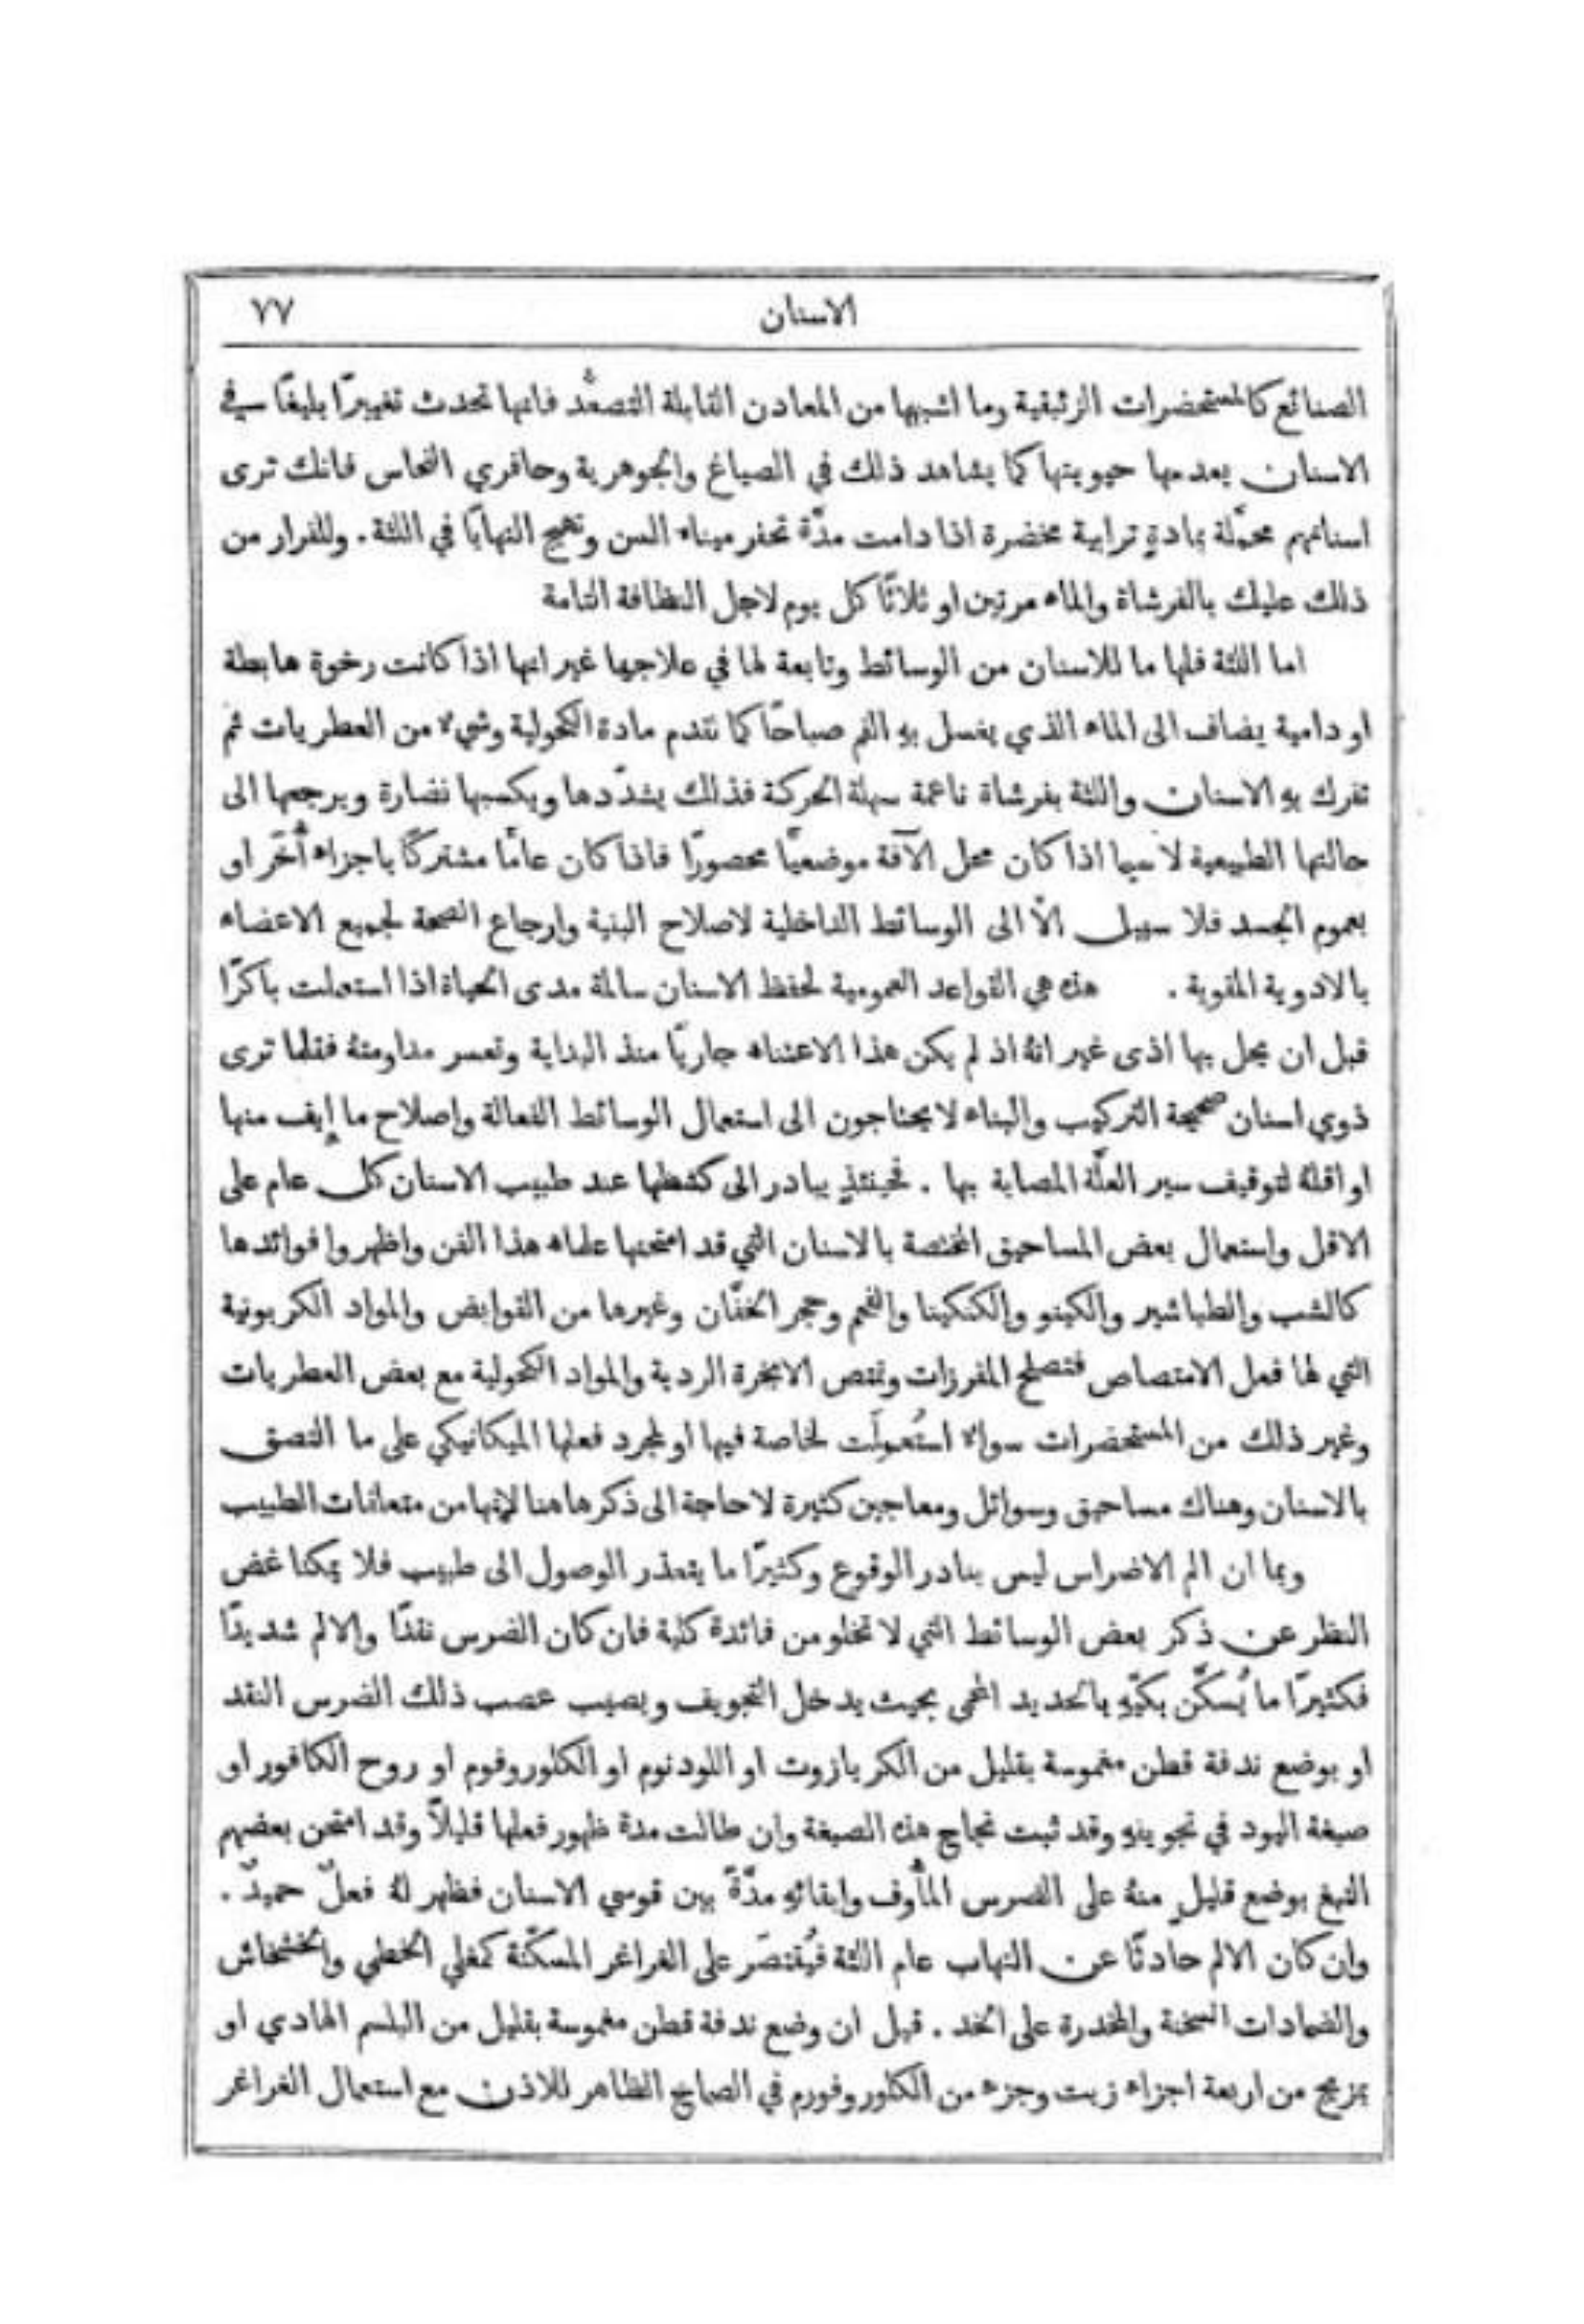 الاسنان ٧٧
الصنائع كالمستحضرات الزئبقية وما اشبهها من المعادن القابلة التصعُّد فانها تحدث تغييرًا بليغًا في
الاسنان بعدمها حيويتها كما يشاهد ذلك في الصياغ والجوهرية وحافري النحاس فانك ترى
اسنانهم محمّلة بمادةٍ ترابية مخضرة اذا دامت مدّة تحفر ميناء السن وتهيج التهابًا في اللثة. وللفرار من
ذلك عليك بالفرشاة والماء مرتين او ثلاثًا كل يوم لاجل النظافة التامة
اما اللثة فلها ما للاسنان من الوسائط وتابعة لها في علاجها غير انها اذا كانت رخوة هابطة
او دامية يضاف الى الماء الذي يغسل بهِ الفم صباحًا كما تقدم مادة الكحولية وشيءٌ من العطريات ثم
تفرك بهِ الاسنان واللثة بفرشاة ناعمة سهلة الحركة فذلك يشدّدها ويكسبها نضارة ويرجعها الى
حالتها الطبيعية لاسيما اذا كان محل الآفة موضعيًا محصورًا فاذا كان عامًا مشتركًا باجزاء أُخَر او
بعموم الجسد فلا سبيل الّا الى الوسائط الداخلية لاصلاح البنية وارجاع الصحة لجميع الاعضاء
بالادوية المقوية. هذه هي القواعد العمومية لحفظ الاسنان سالمة مدى الحياة اذا استعملت باكرًا
قبل ان يحل بها اذى غير انهُ اذ لم يكن هذا الاعتناء جاريًا منذ البداية وتعسر مداومتهُ فقلما ترى
ذوي اسنان صحيحة التركيب والبناء لا يحتاجون الى استعمال الوسائط الفعالة واصلاح ما إيف منها
او اقلهُ لتوقيف سير العلّة المصابة بها. فحينئذٍ يبادر الى كشطها عند طبيب الاسنان كل عام على
الاقل واستعمال بعض المساحيق المختصة بالاسنان التي قد امتحنها علماء هذا الفن واظهروا فوائدها
كالشب والطباشير والكينو والكنكينا والفحم وحجر الخفّان وغيرها من القوابض والمواد الكربونية
التي لها فعل الامتصاص فتصلح المفرزات وتمتص الابخرة الردية والمواد الكحولية مع بعض العطريات
وغير ذلك من المستحضرات سواءٌ استُعمِلَت لخاصة فيها او لمجرد فعلها الميكانيكي على ما التصق
بالاسنان وهناك مساحيق وسوائل ومعاجين كثيرة لا حاجة الى ذكرها هنا لإنها من متعلقات الطبيب
وبما ان الم الاضراس ليس بنادر الوقوع وكثيرًا ما يتعذر الوصول الى طبيب فلا يمكنا غض
النظر عن ذكر بعض الوسائط التي لا تخلو من فائدة كلية فان كان الضرس نقدًا والالم شديدًا
فكثيرًا ما يُسكَّن بكيّهِ بالحديد المحمى بحيث يدخل التجويف ويصيب عصب ذلك الضرس النقد
او بوضع ندفة قطن مغموسة بقليل من الكريازوت او اللودنوم او الكلوروفوم او روح الكافور او
صبغة اليود في تجويفهِ وقد ثبت نجاح هذه الصبغة وان طالت مدة ظهور فعلها قليلاً وقد امتحن بعضهم
التبغ بوضع قليلٍ منهُ على الضرس المأوف وابقائهِ مدّةً بين قوسي الاسنان فظهر لهُ فعلٌ حميدٌ.
وان كان الالم حادثًا عن التهاب عام اللثة فيُقتصَر على الغراغر المسكّنة كمغلي الخطمي والخشخاش
والضمادات السخنة والمخدرة على الخد. قيل ان وضع ندفة قطن مغموسة بقليل من البلسم الهادي او
بمزيج من اربعة اجزاء زيت وجزء من الكلوروفورم في الصماخ الظاهر للاذن مع استعمال الغراغر